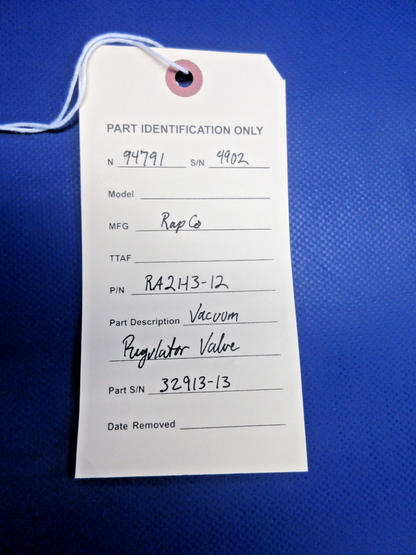 PART IDENTIFICATION ONLY
N 94791 S/N 4902
Model
MFG RapCo
TTAF
P/N RA2H3-12
Part Description Vacuom
Regulator Valve
Part S/N 32913-13
Date Removed